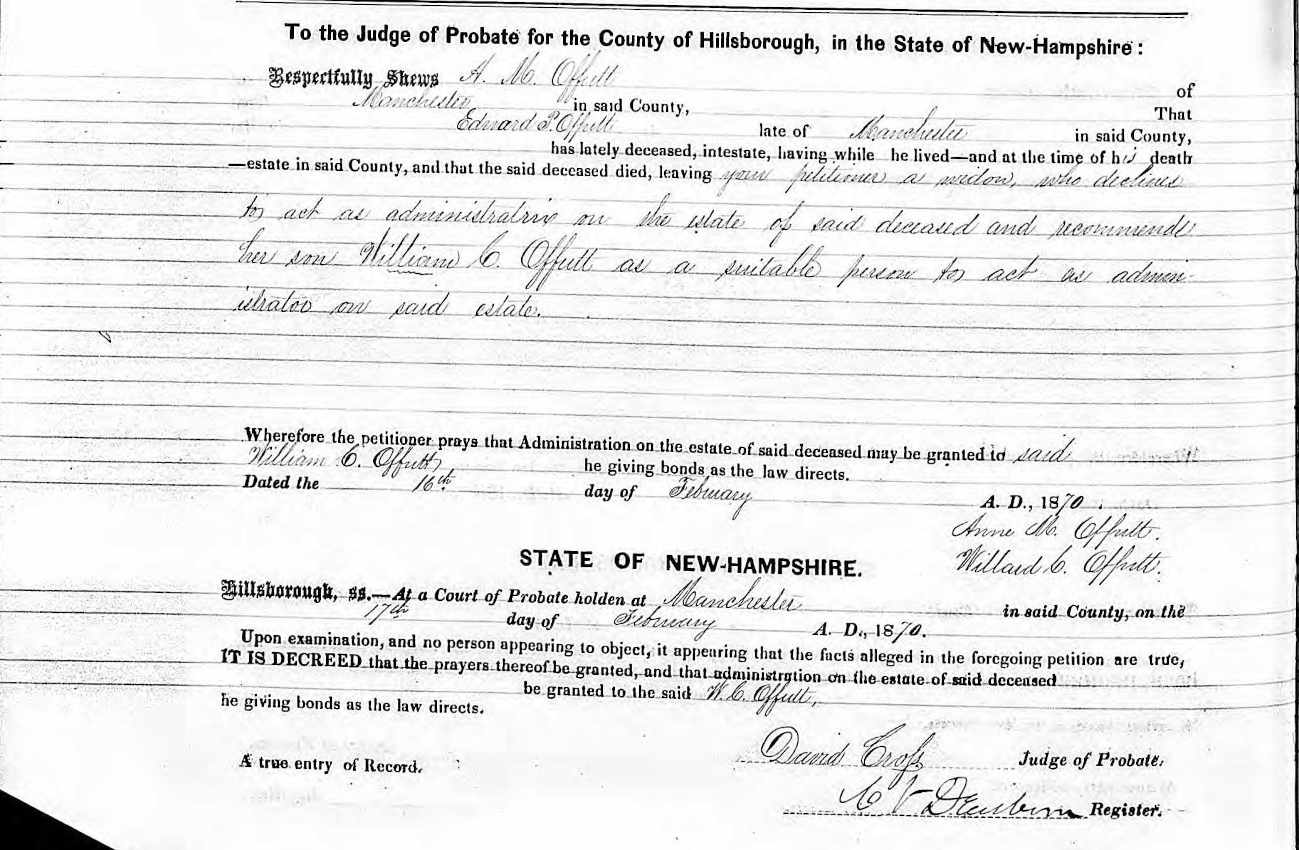 To the Judge of Probate for the County of Hillsborough, in the State of New-Hampshire:
Respectfully Shews A. M. Offutt of
Manchester in said County, That
Edward P. Offutt late of Manchester in said County,
has lately deceased, intestate, having while he lived—and at the time of his death
—estate in said County, and that the said deceased died, leaving your petitioner a widow, who declines
to act as administratrix on the estate of said deceased and recommends
her son William C. Offutt as a suitable person to act as admin-
istrator on said estate.
Wherefore the petitioner prays that Administration on the estate of said deceased may be granted to said
William C. Offutt, he giving bonds as the law directs.
Dated the 16th day of February A. D., 1870.
Anne M. Offutt.
Willard C. Offutt.
STATE OF NEW-HAMPSHIRE.
Hillsborough, ss.—At a Court of Probate holden at Manchester in said County, on the
17th day of February A. D., 1870.
Upon examination, and no person appearing to object, it appearing that the facts alleged in the foregoing petition are true,
IT IS DECREED that the prayers thereof be granted, and that administration on the estate of said deceased
be granted to the said W. C. Offutt,
he giving bonds as the law directs.
David Cross Judge of Probate.
A true entry of Record.
Register.